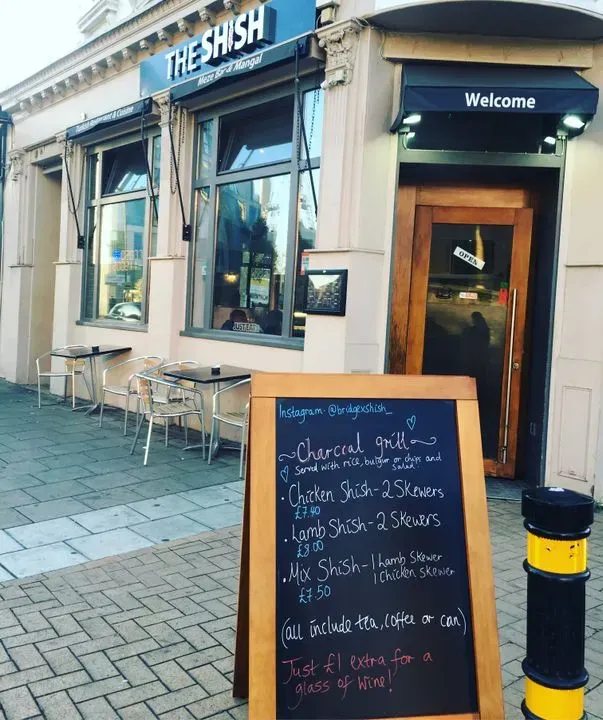 THE SHISH
Meze Bar & Mangal
Turkish Restaurant & Cuisine
Welcome
OPEN
JUST EAT
Instagram - @bridgexshish_
~Charcoal grill~
Served with rice, bulgur or chips and
salad
• Chicken Shish - 2 Skewers
£7.40
• Lamb Shish - 2 Skewers
£8.00
• Mix Shish - 1 Lamb Skewer
1 Chicken skewer
£7.50
(all include tea, coffee or can)
Just £1 extra for a
glass of wine!